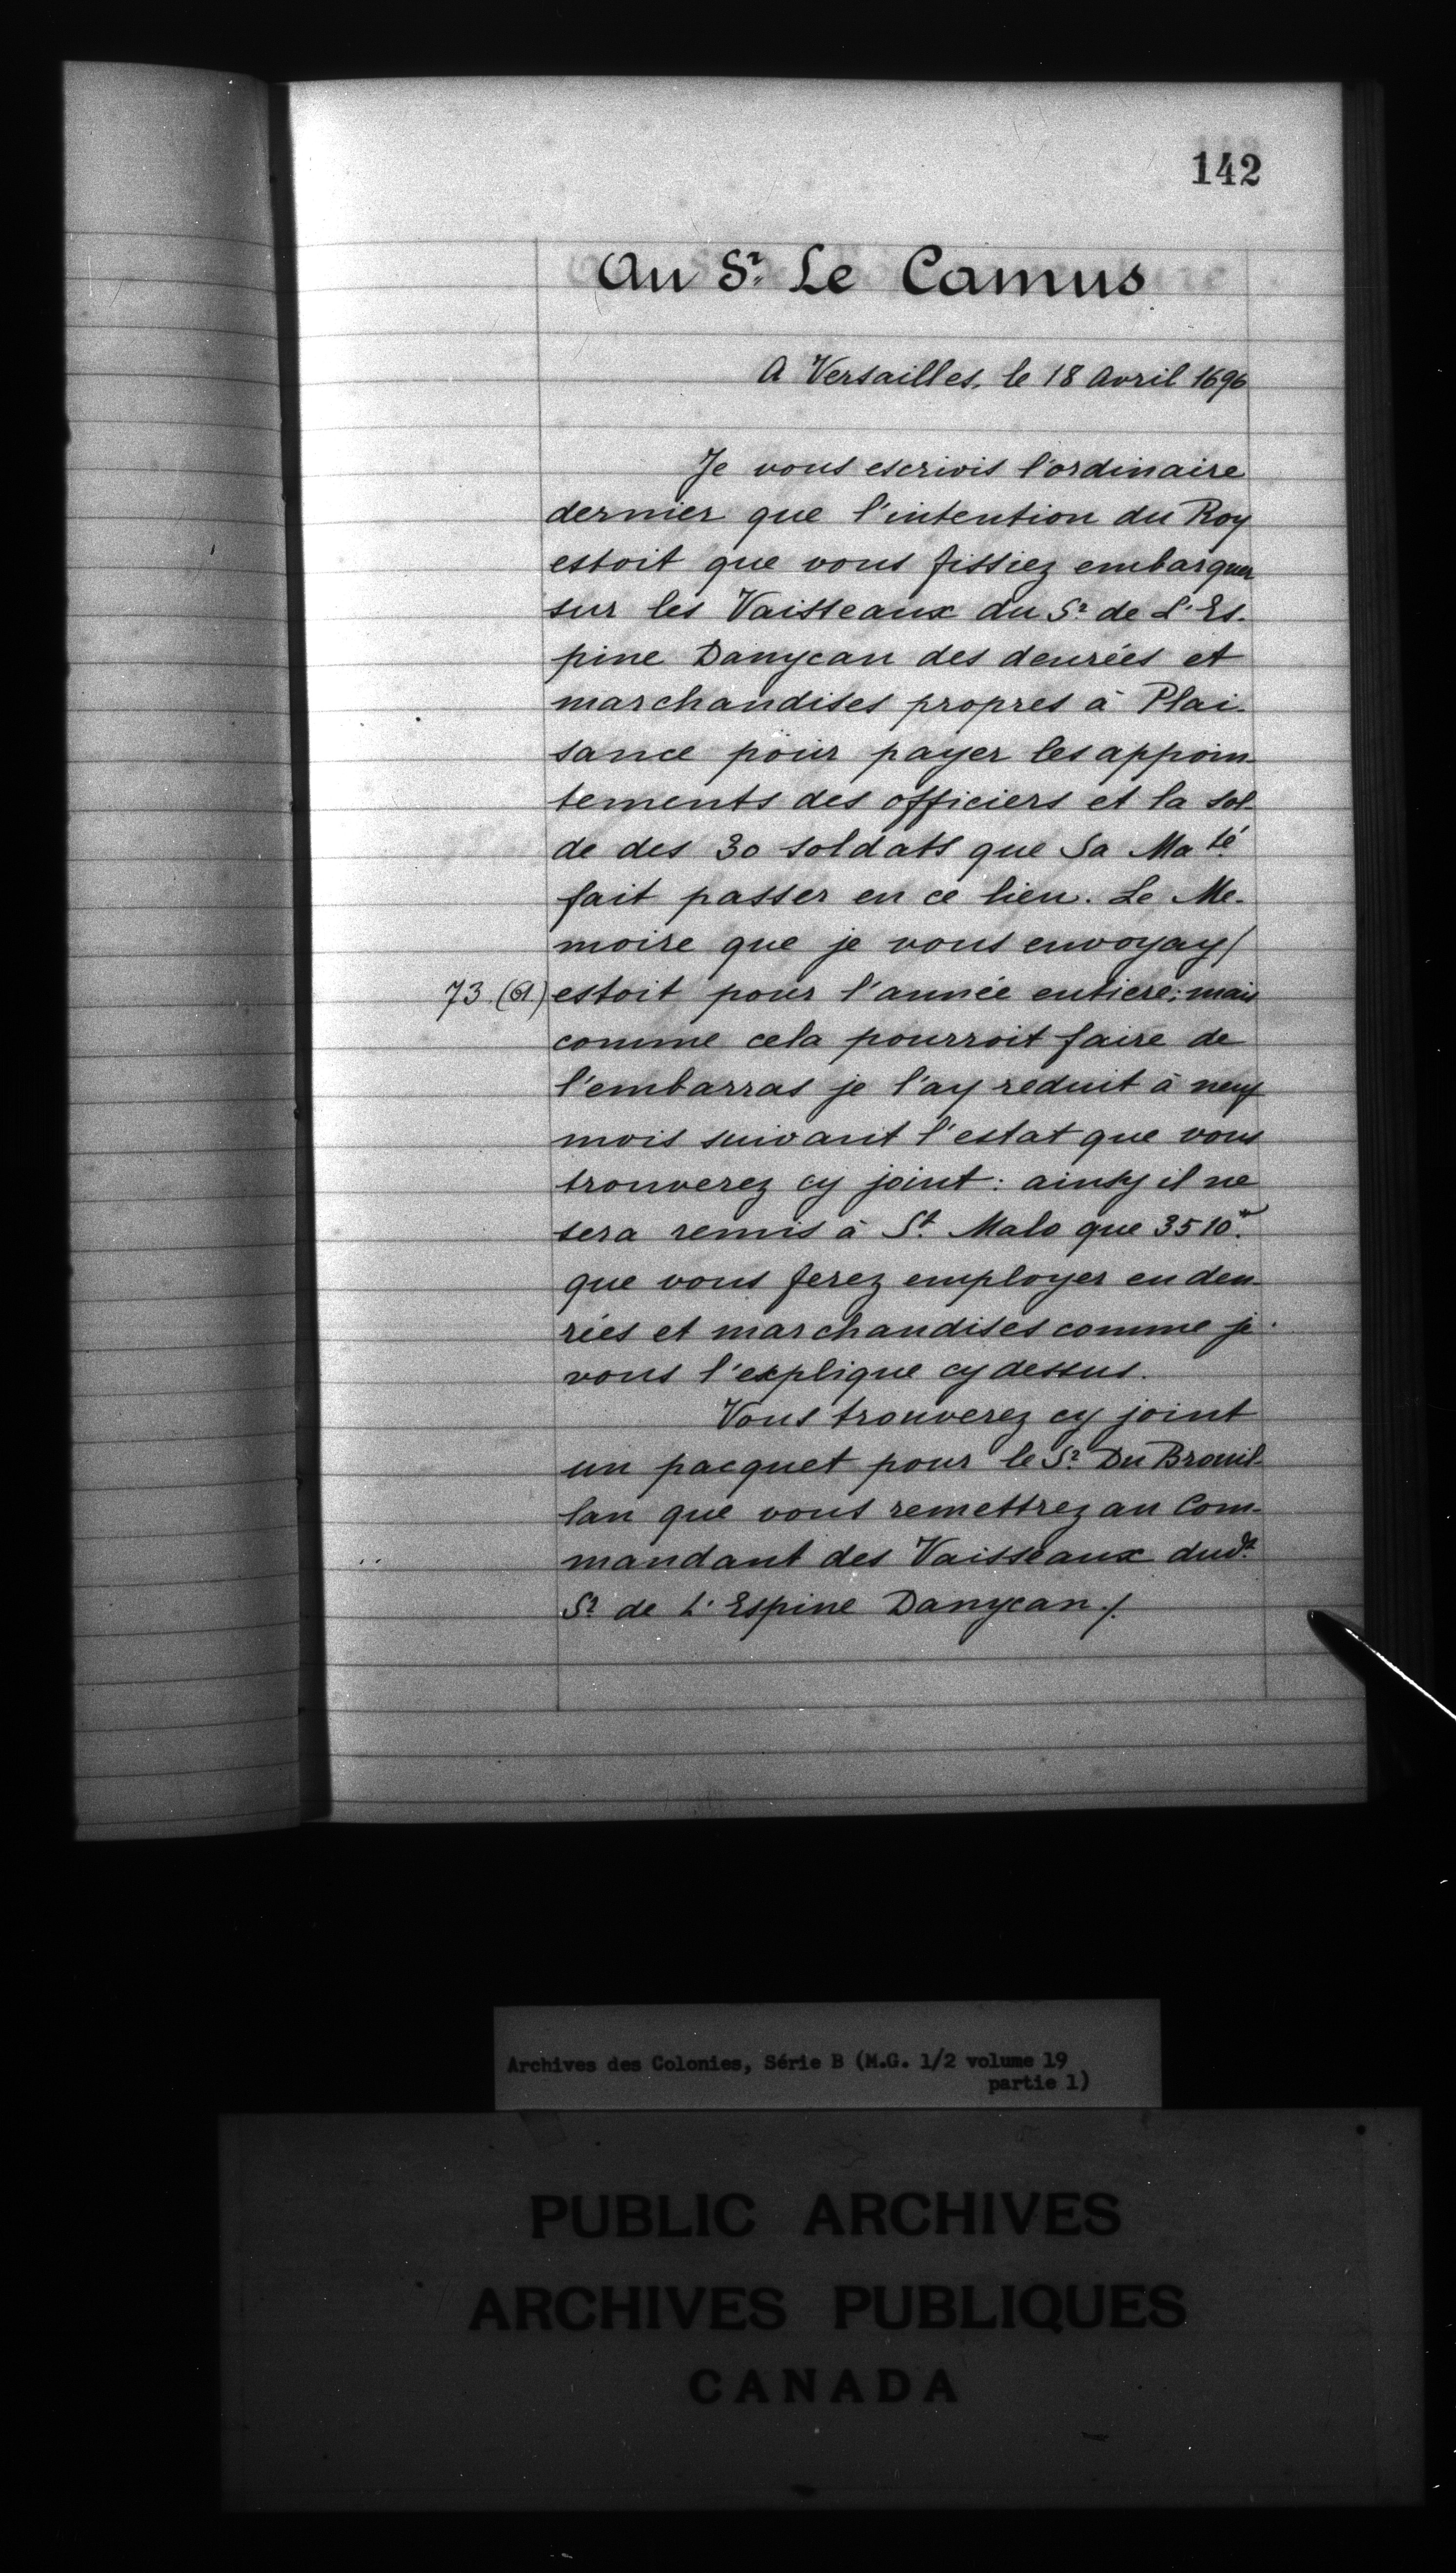 142
Au Sr. Le Camus
A Versailles, le 18 Avril 1696
Je vous escrivis l'ordinaire
dernier que l'intention du Roy
estoit que vous fissiez embarquer
sur les Vaisseaux du Sr. de L'Es-
pine Danycan des denrées et
marchandises propres à Plai-
sance pour payer les appoin-
tements des officiers et la sol-
de des 30 soldats que Sa Maté.
fait passer en ce lieu. Le Me-
moire que je vous envoyay/
73 (a) estoit pour l'année entiere; mais
comme cela pourroit faire de
l'embarras je l'ay reduit à neuf
mois suivant l'estat que vous
trouverez cy joint: ainsy il ne
sera remis à St. Malo que 3510.#
que vous ferez employer en den-
rées et marchandises comme je
vous l'explique cy dessus.
Vous trouverez cy joint
un pacquet pour le Sr. Du Brouil-
lan que vous remettrez au Com-
mandant des Vaisseaux dud.
Sr. de L'Espine Danycan./.
Archives des Colonies, Série B (M.G. 1/2 volume 19
partie 1)
PUBLIC ARCHIVES
ARCHIVES PUBLIQUES
CANADA